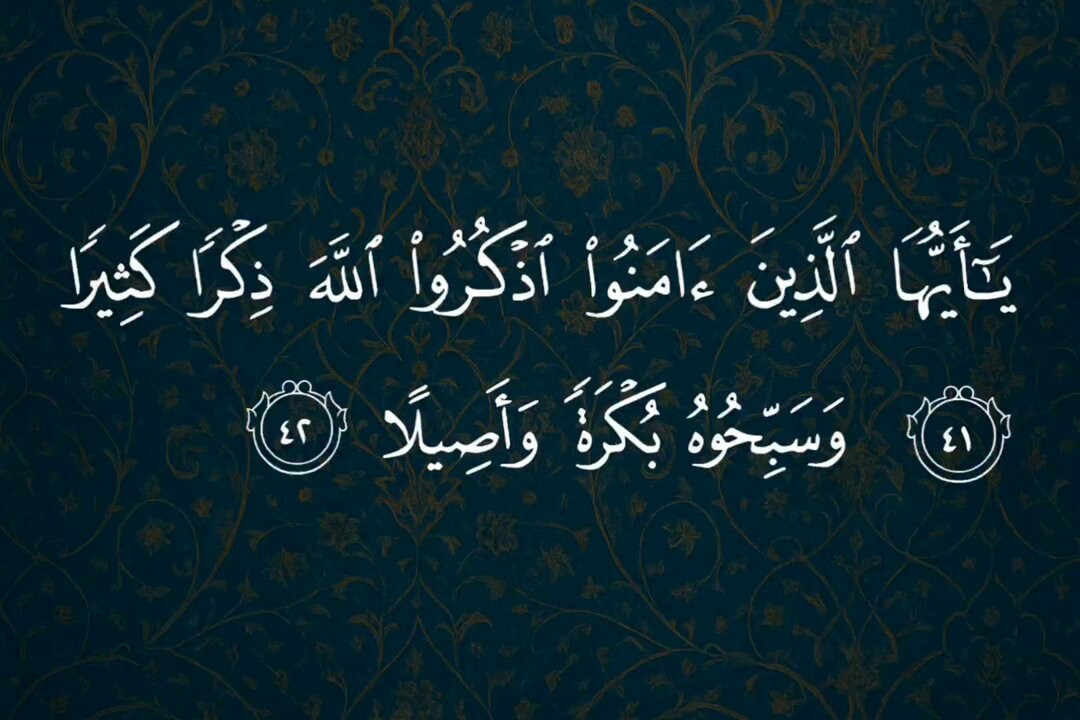 يَـٰٓأَيُّهَا ٱلَّذِينَ ءَامَنُوا۟ ٱذْكُرُوا۟ ٱللَّهَ ذِكْرًا كَثِيرًا
٤١ وَسَبِّحُوهُ بُكْرَةً وَأَصِيلًا ٤٢